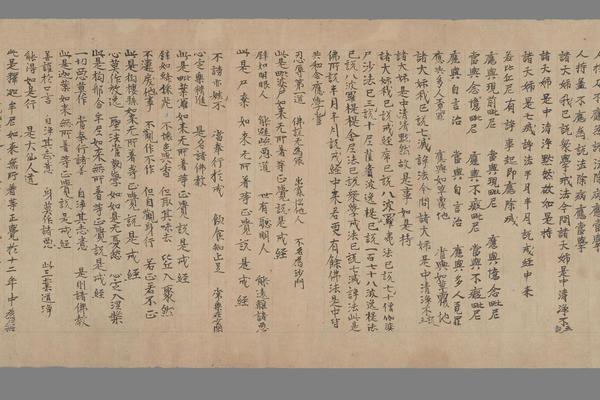 人持石不應為說法除病應當學
人持蓋不應為說法除病應當學
諸大姊我已說眾學戒法今問諸大姊是中清淨不三說
諸大姊是中清淨默然故如是持
諸大姊是七滅諍法半月半月說戒經中來
若比丘尼有諍事起即應除滅
應與現前毗尼 當與現前毗尼 應與憶念毗尼
當與憶念毗尼 應與不癡毗尼 當與不癡毗尼
應與自言治 當與自言治 應與多人覓罪
應與如草覆地 當與如草覆地
諸大姊我已說七滅諍法今問諸大姊是中清淨不三說
諸大姊是中清淨默然故是事如是持
諸大姊我已說戒經序已說八波羅夷法已說十七僧伽婆
尸沙法已說三十尼薩耆波逸提已說一百七十八波逸提法
已說八波羅提提舍尼法已說眾學戒法已說七滅諍法此是
佛所說半月半月說戒經中來若更有餘佛法是中皆
共和合應當學
忍辱第一道 佛說无為最 出家惱他人 不名為沙門
此是毗婆尸如來无所著等正覺說是戒經
譬如明眼人 能避嶮惡道 世有聰明人 能遠離諸惡
此是尸棄如來无所著等正覺說是戒經
不謗亦不嫉 當奉行於戒 飲食知止足 常樂在空閑
心定樂精進 是名諸佛教
此是毗葉羅如來无所著等正覺說是戒經
譬如蜂採花 不壞色與香 但取其味去 比丘入聚然
不違戾他事 不觀作不作 但自觀身行 若正若不正
此是拘樓孫如來无所著等正覺說是戒經
心莫作放逸 聖法當勤學 如是无憂愁 心定入涅槃
此是拘那含牟尼如來无所著等正覺說是戒經
一切惡莫作 當奉行諸善 自淨其志意 是則諸佛教
此是迦葉如來无所著等正覺說是戒經
善護於口言 自淨其志意 身莫作諸惡 此三業道淨
能得如是行 是大仙人道
此是釋迦牟尼如來无所著等正覺於十二年中